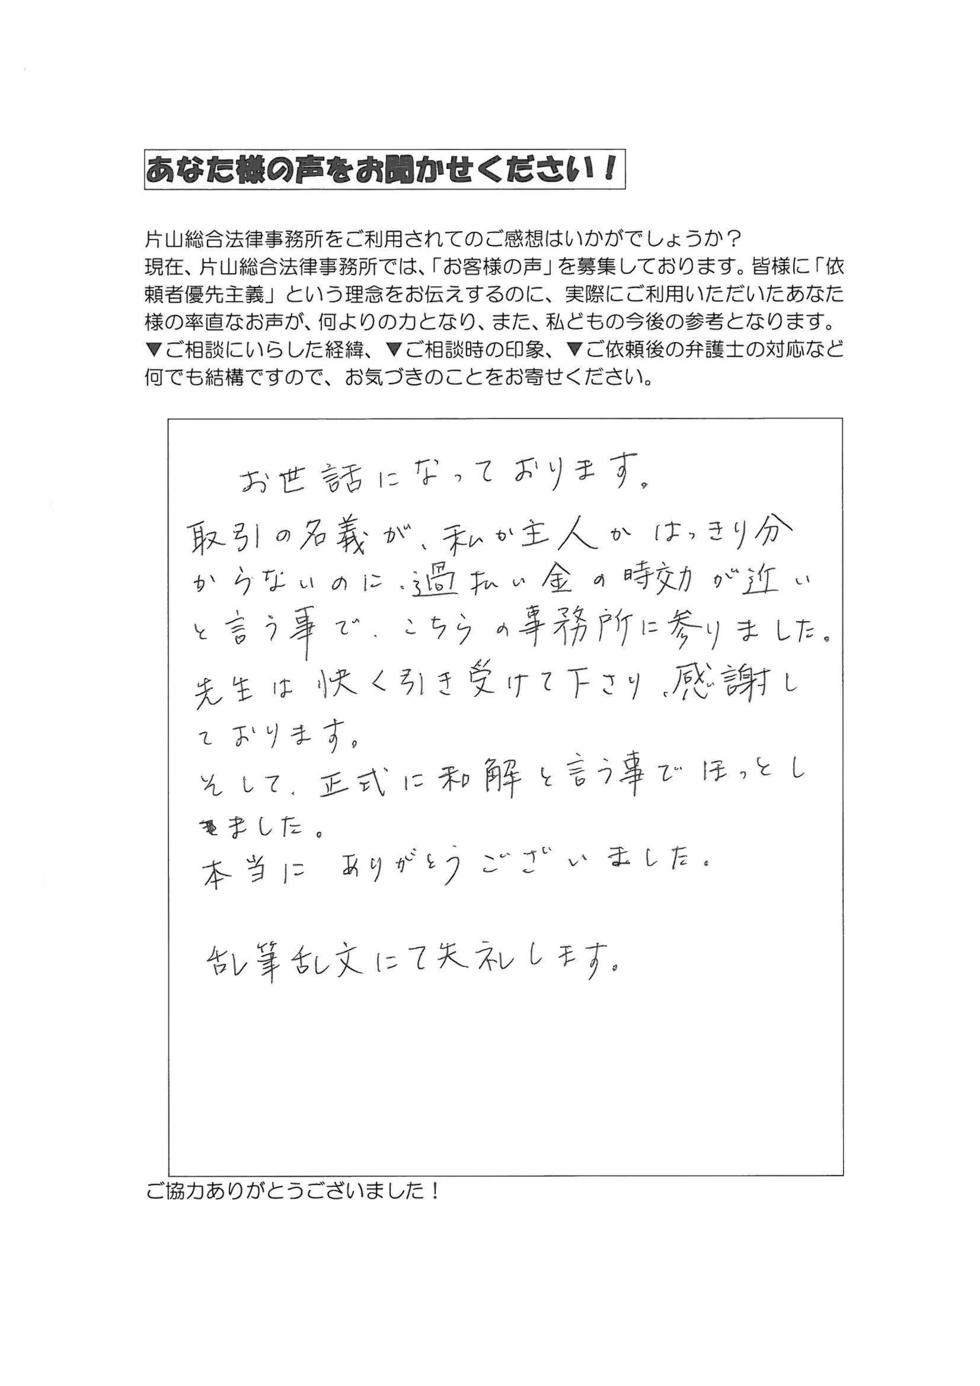 あなた様の声をお聞かせください！
片山総合法律事務所をご利用されてのご感想はいかがでしょうか？
現在、片山総合法律事務所では、「お客様の声」を募集しております。皆様に「依
頼者優先主義」という理念をお伝えするのに、実際にご利用いただいたあなた
様の率直なお声が、何よりの力となり、また、私どもの今後の参考となります。
▼ご相談にいらした経緯、▼ご相談時の印象、▼ご依頼後の弁護士の対応など
何でも結構ですので、お気づきのことをお寄せください。
お世話になっております。
取引の名義が、私か主人かはっきり分
からないのに、過払い金の時効が近い
と言う事で、こちらの事務所に参りました。
先生は快く引き受けて下さり、感謝し
ております。
そして、正式に和解と言う事でほっとし
ました。
本当にありがとうございました。
乱筆乱文にて失礼します。
ご協力ありがとうございました！